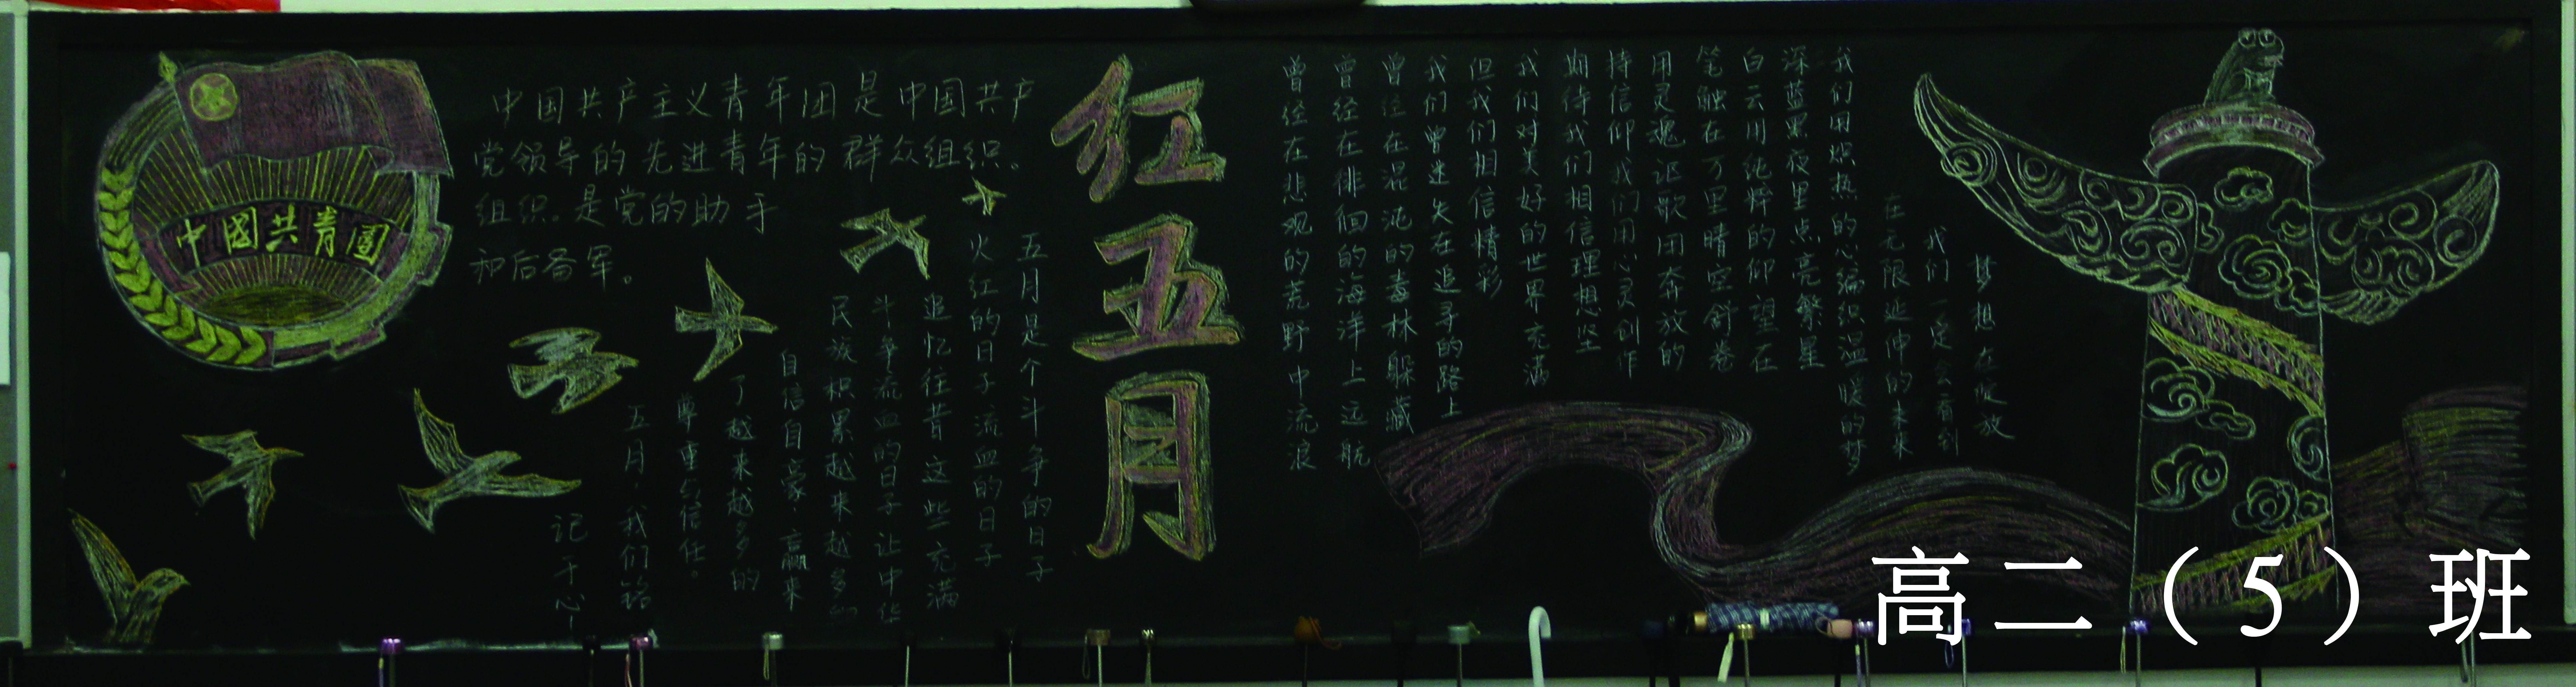 中國共青團
中国共产主义青年团是中国共产
党领导的先进青年的群众组织。
组织。是党的助手
和后备军。
红五月
五月是个斗争的日子
火红的日子流血的日子
追忆往昔这些充满
斗争流血的日子让中华
民族积累越来越多
自信自豪,赢来
了越来越多的
尊重与信任。
五月,我们铭
记于心!
曾经在悲观的荒野中流浪
曾经在徘徊的海洋上远航
曾经在混沌的毒林躲藏
我们曾迷失在追寻的路上
但我们相信精彩
我们对美好的世界充满
期待我们相信理想坚
持信仰我们用心灵创作
用灵魂讴歌用奔放的
笔触在万里晴空舒卷
白云用纯粹的仰望在
深蓝黑夜里点亮繁星
我们用炽热的心编织温暖的梦
在无限延伸的未来
我们一定会看到
梦想在绽放
高二（5）班